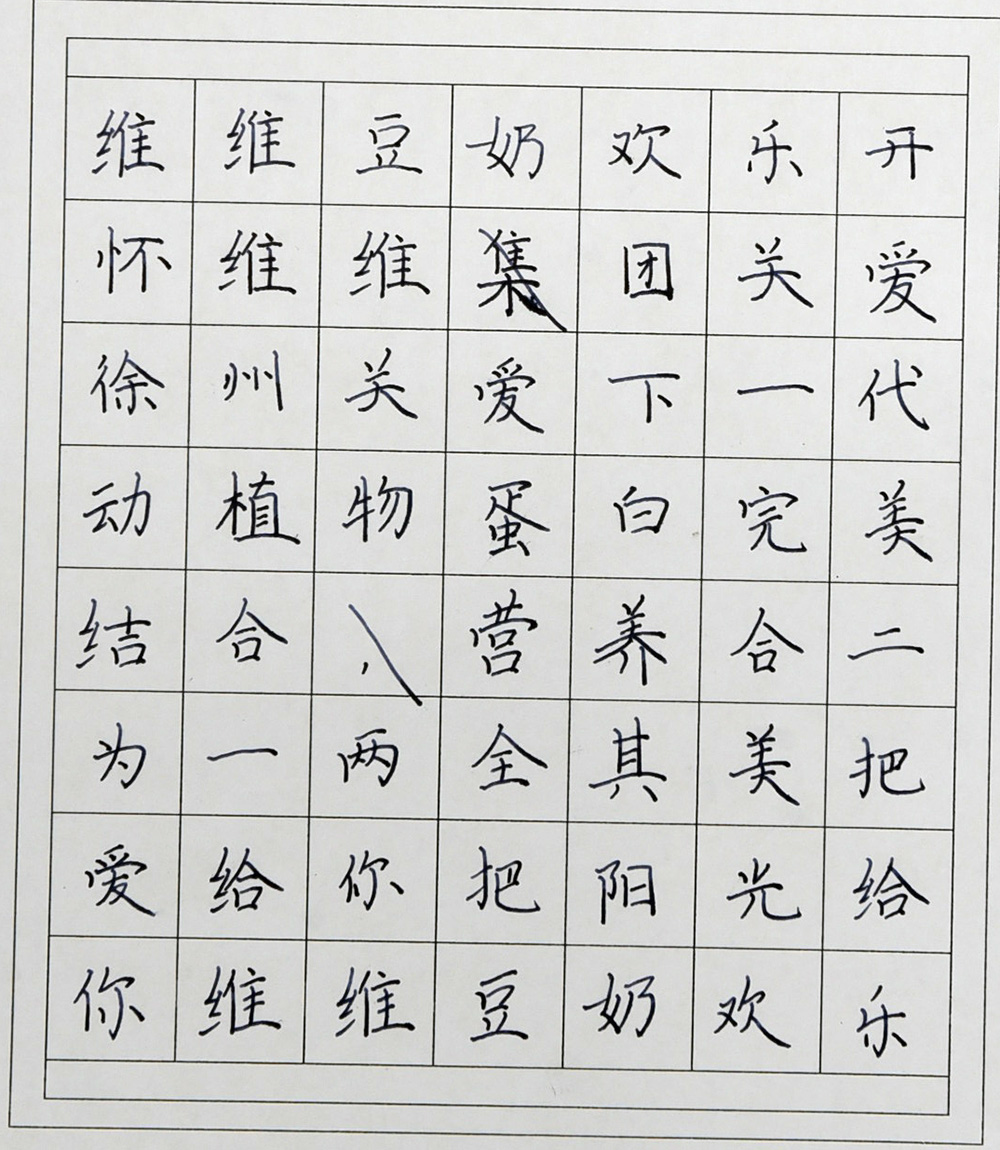 维维豆奶欢乐开
怀维维集团关爱
徐州关爱下一代
动植物蛋白完美
结合，营养合二
为一两全其美把
爱给你把阳光给
你维维豆奶欢乐